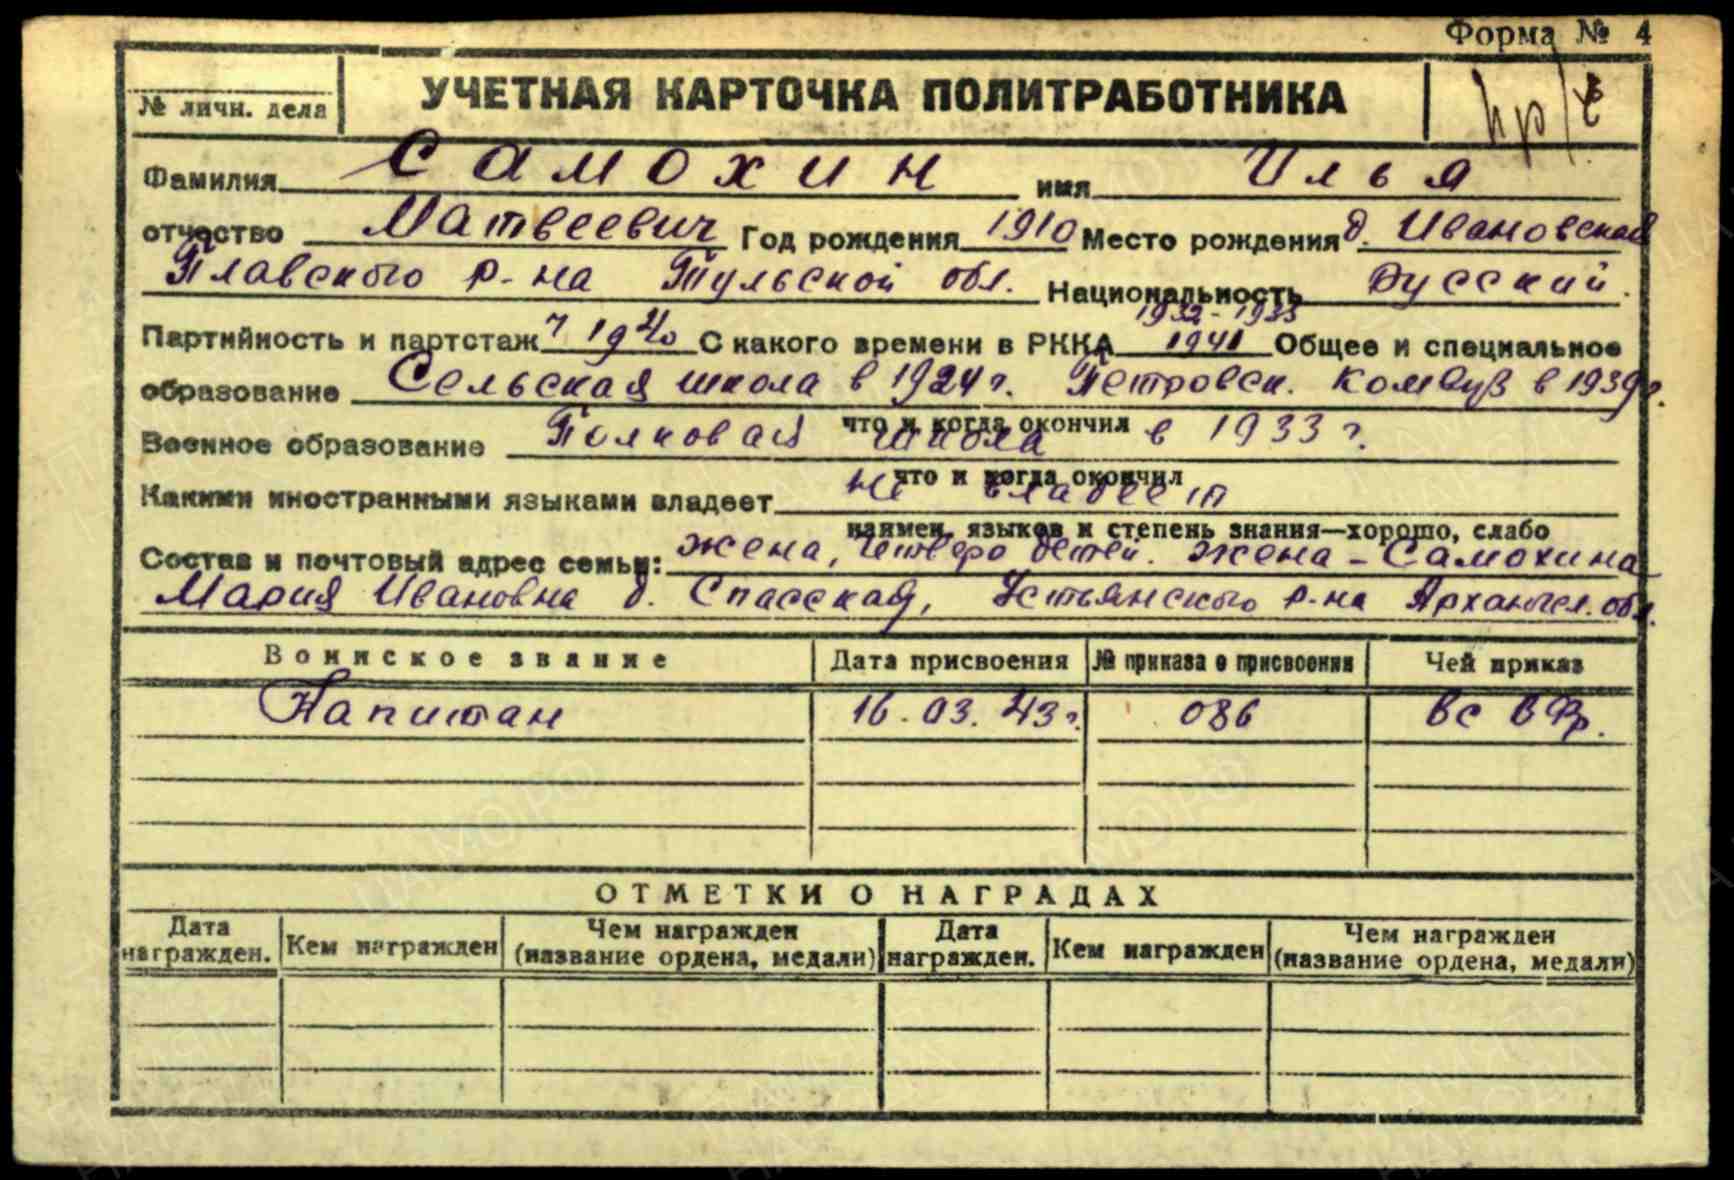 Форма № 4
№ личн. дела
УЧЕТНАЯ КАРТОЧКА ПОЛИТРАБОТНИКА
Фамилия Самохин имя Илья
отчество Матвеевич Год рождения 1910 Место рождения д. Ивановская
Плавского р-на Тульской обл. Национальность Русский.
1932-1933
Партийность и партстаж ч 1940 С какого времени в РККА 1941 Общее и специальное
образование Сельская школа в 1924 г. Петровск. Комвуз в 1939 г.
что и когда окончил
Военное образование Полковая школа в 1933 г.
что и когда окончил
Какими иностранными языками владеет не владеет
наимен. языков и степень знания—хорошо, слабо
Состав и почтовый адрес семьи: жена, четверо детей. жена - Самохина
Мария Ивановна д. Спасская, Устьянского р-на Архангел. обл.
Воинское звание Дата присвоения № приказа о присвоении Чей приказ
Капитан 16.03.43 г. 086 ВС В Фр.
ОТМЕТКИ О НАГРАДАХ
Дата награжден. Кем награжден Чем награжден (название ордена, медали) Дата награжден. Кем награжден Чем награжден (название ордена, медали)